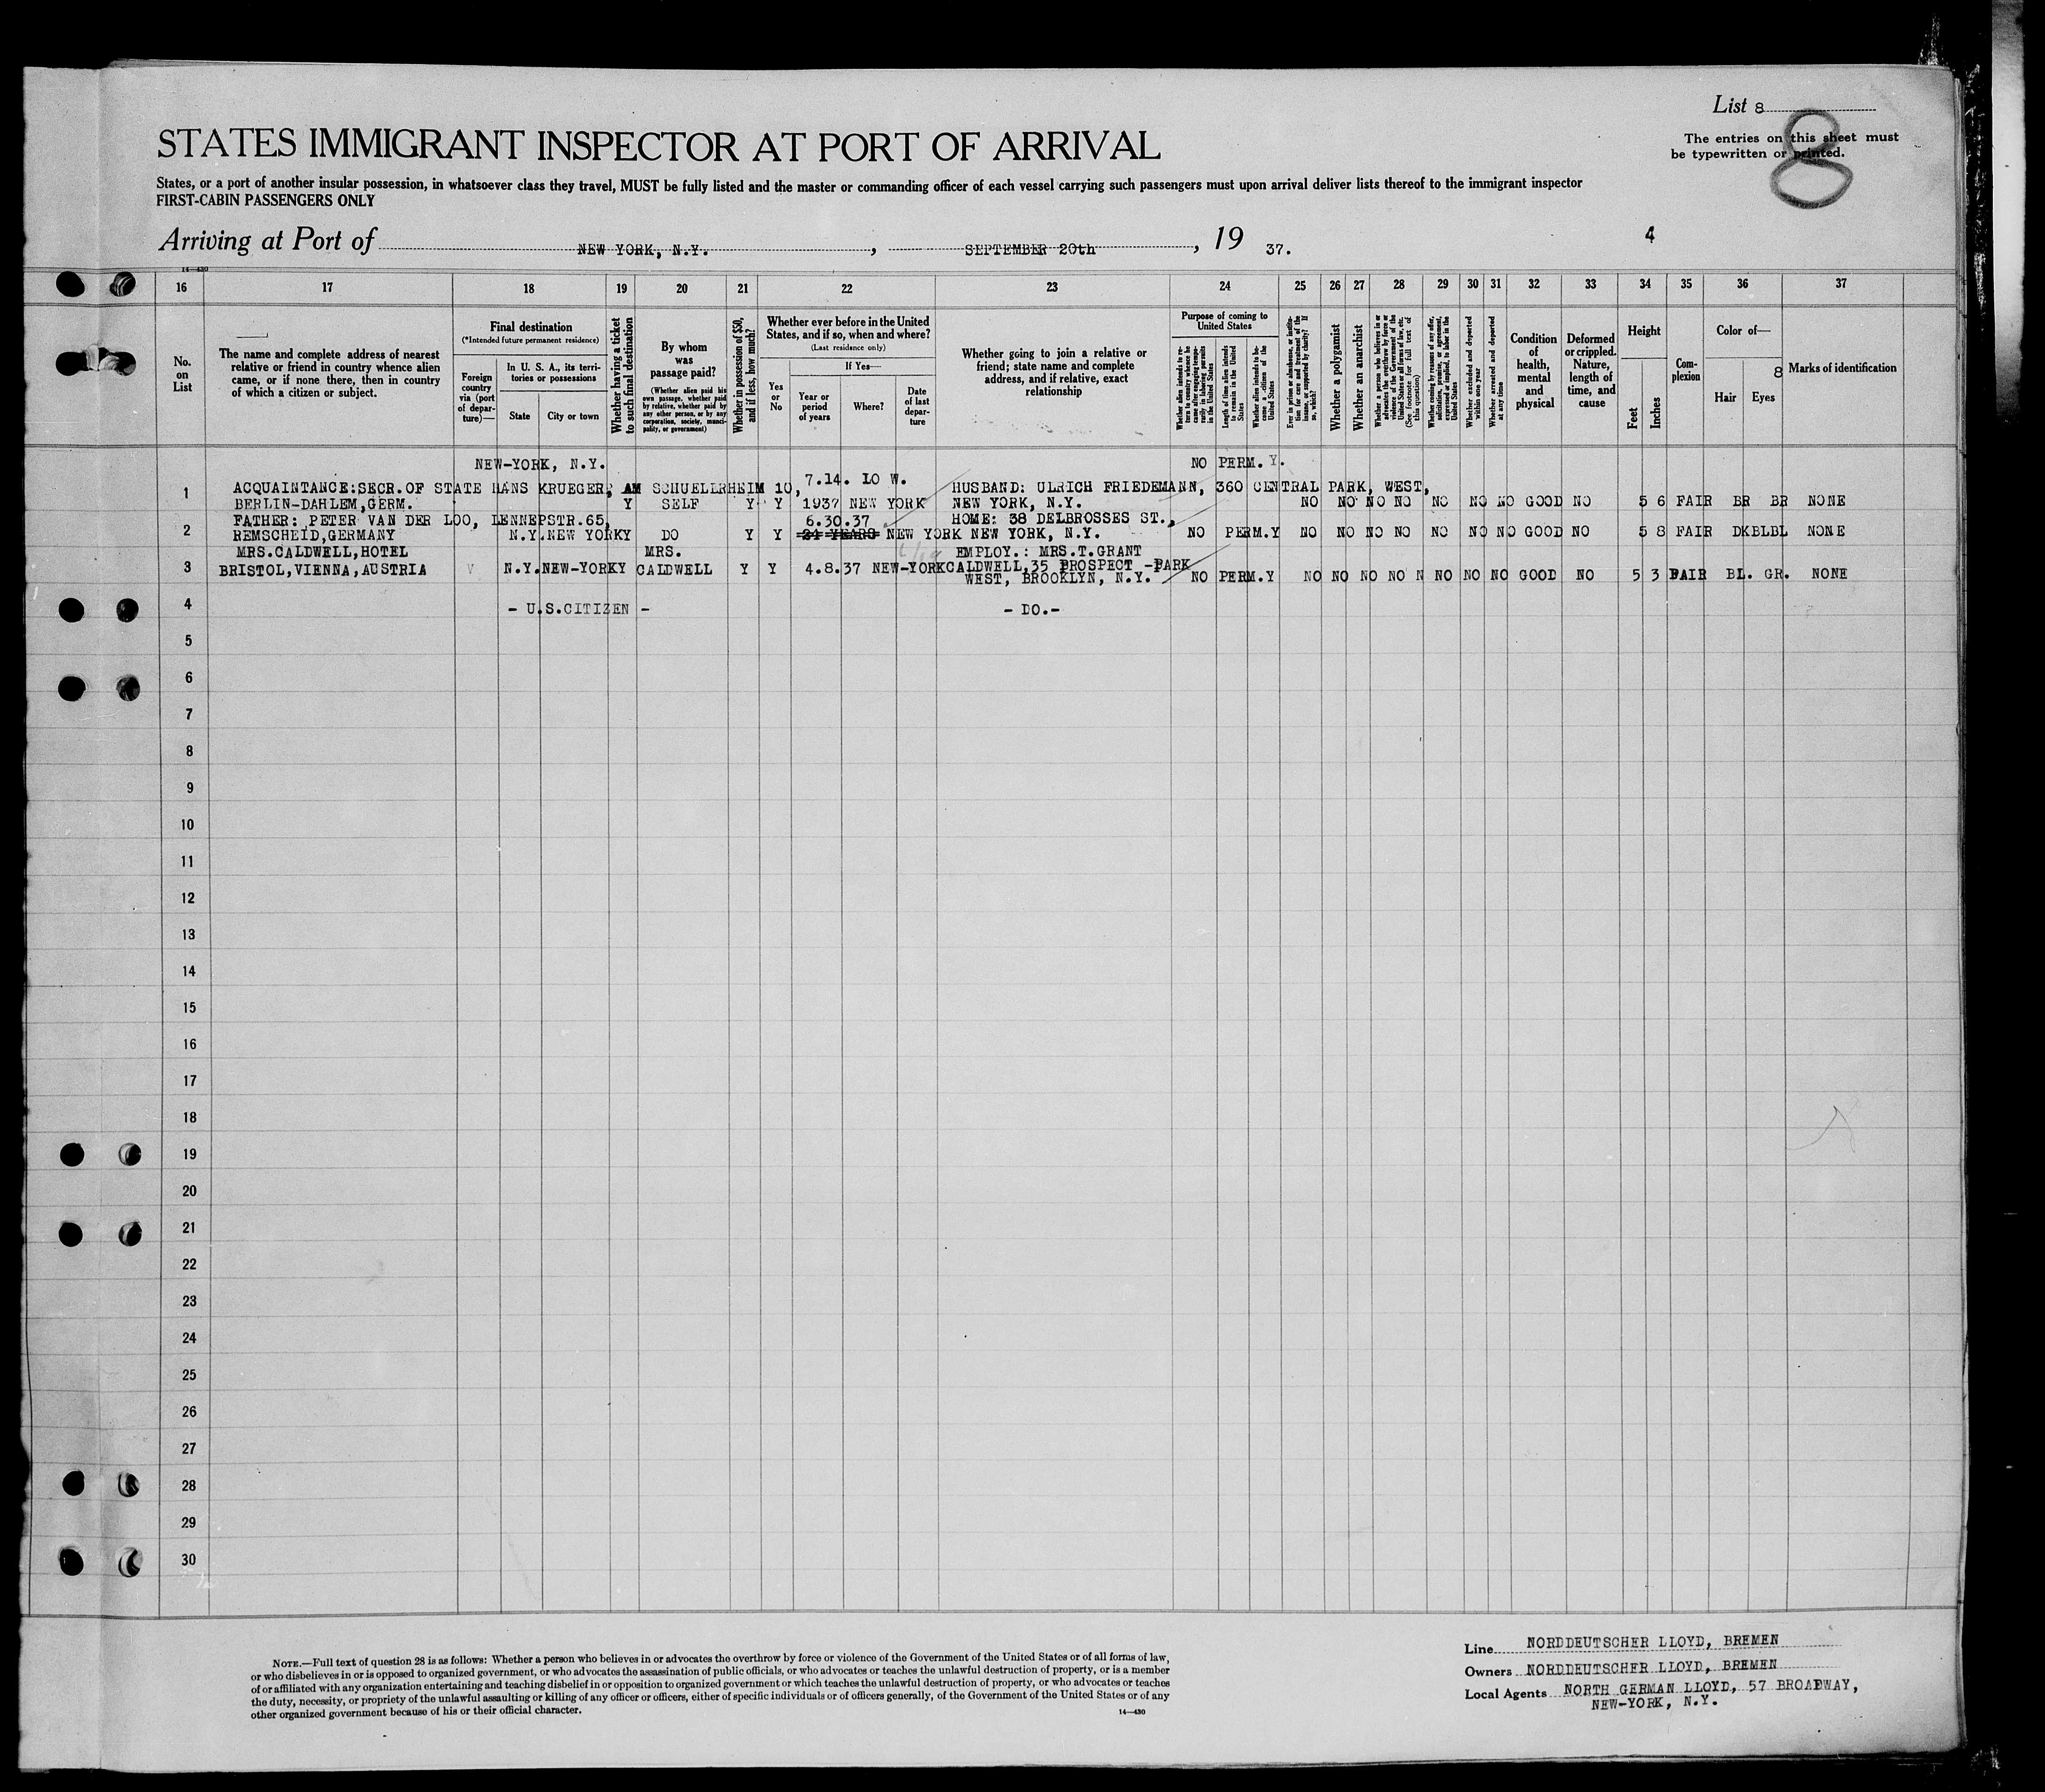 List 8
8
The entries on this sheet must
be typewritten or printed.
STATES IMMIGRANT INSPECTOR AT PORT OF ARRIVAL
States, or a port of another insular possession, in whatsoever class they travel, MUST be fully listed and the master or commanding officer of each vessel carrying such passengers must upon arrival deliver lists thereof to the immigrant inspector
FIRST-CABIN PASSENGERS ONLY
Arriving at Port of NEW YORK, N.Y. , SEPTEMBER 20th , 19 37.
4
14—430
16 17 18 19 20 21 22 23 24 25 26 27 28 29 30 31 32 33 34 35 36 37
No. on List
The name and complete address of nearest relative or friend in country whence alien came, or if none there, then in country of which a citizen or subject.
Final destination
(*Intended future permanent residence)
Foreign country via (port of departure)—
In U. S. A., its territories or possessions
State
City or town
Whether having a ticket to such final destination
By whom was passage paid?
(Whether alien paid his own passage, whether paid by relative, whether paid by any other person, or by any corporation, society, municipality, or government)
Whether in possession of $50, and if less, how much?
Whether ever before in the United States, and if so, when and where?
(Last residence only)
Yes or No
If Yes—
Year or period of years
Where?
Date of last departure
Whether going to join a relative or friend; state name and complete address, and if relative, exact relationship
Purpose of coming to United States
Whether alien intends to return to country whence he came after engaging temporarily in laboring pursuits in the United States
Length of time alien intends to remain in the United States
Whether alien intends to become a citizen of the United States
Ever in prison or almshouse, or institution for care and treatment of the insane, or supported by charity? If so, which?
Whether a polygamist
Whether an anarchist
Whether a person who believes in or advocates the overthrow by force or violence of the Government of the United States or all forms of law, etc. (See footnote for full text of this question)
Whether coming by reasons of any offer, solicitation, promise, or agreement, expressed or implied, to labor in the United States
Whether excluded and deported within one year
Whether arrested and deported at any time
Condition of health, mental and physical
Deformed or crippled. Nature, length of time, and cause
Height
Feet
Inches
Complexion
Color of—
8
Hair
Eyes
Marks of identification
NEW-YORK, N.Y. NO PERM. Y.
7.14. LO W.
1 ACQUAINTANCE:SECR.OF STATE HANS KRUEGER, AM SCHUELLRHEIM 10, HUSBAND: ULRICH FRIEDEMANN, 360 CENTRAL PARK, WEST,
BERLIN-DAHLEM,GERM. Y SELF Y Y 1937 NEW YORK NEW YORK, N.Y. NO NO NO NO NO NO NO GOOD NO 5 6 FAIR BR BR NONE
FATHER: PETER VAN DER LOO, LENNEPSTR.65, 6.30.37 HOME: 38 DELBROSSES ST.,
2 REMSCHEID,GERMANY N.Y.NEW YORKY DO Y Y 24 YEARS NEW YORK NEW YORK, N.Y. NO PERM.Y NO NO NO NO NO NO NO GOOD NO 5 8 FAIR DKBLBL NONE
MRS.CALDWELL,HOTEL MRS. EMPLOY.: MRS.T.GRANT
3 BRISTOL,VIENNA,AUSTRIA V N.Y.NEW-YORKY CALDWELL Y Y 4.8.37 NEW-YORKCALDWELL,35 PROSPECT -PARK
WEST, BROOKLYN, N.Y. NO PERM.Y NO NO NO NO N NO NO NO GOOD NO 5 3 FAIR BL. GR. NONE
4 - U.S.CITIZEN - - DO.-
5
6
7
8
9
10
11
12
13
14
15
16
17
18
19
20
21
22
23
24
25
26
27
28
29
30
NOTE.—Full text of question 28 is as follows: Whether a person who believes in or advocates the overthrow by force or violence of the Government of the United States or of all forms of law,
or who disbelieves in or is opposed to organized government, or who advocates the assassination of public officials, or who advocates or teaches the unlawful destruction of property, or is a member
of or affiliated with any organization entertaining and teaching disbelief in or opposition to organized government or which teaches the unlawful destruction of property, or who advocates or teaches
the duty, necessity, or propriety of the unlawful assaulting or killing of any officer or officers, either of specific individuals or of officers generally, of the Government of the United States or of any
other organized government because of his or their official character.
14—430
Line NORDDEUTSCHER LLOYD, BREMEN
Owners NORDDEUTSCHER LLOYD, BREMEN
Local Agents NORTH GERMAN LLOYD, 57 BROADWAY,
NEW-YORK, N.Y.